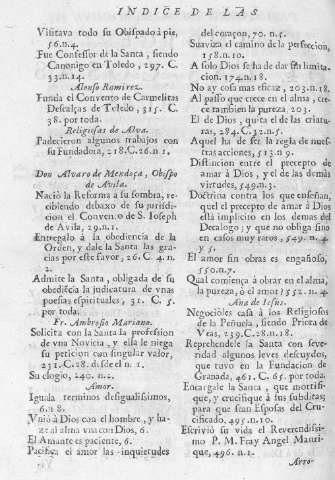 INDICE DE LAS
Visitava todo su Obispado à pie,
56. n. 4.
Fue Confessor de la Santa, siendo
Canonigo en Toledo, 297. C.
33. n. 14.
Alonso Ramirez.
Funda el Convento de Carmelitas
Descalças de Toledo, 315. C.
38. por toda.
Religiosas de Alva.
Padecieron algunos trabajos con
su Fundadora, 218. C. 26. n 1.
Don Alvaro de Mendoça, Obispo
de Avila.
Naciò la Reforma à su sombra, re-
cibiendo debaxo de su jurisdi-
cion el Convento de S. Ioseph
de Avila, 29. n. 1.
Entregalo à la obediencia de la
Orden, y dale la Santa las gra-
cias por este favor, 26. C. 4. n.
2.
Admite la Santa, obligada de su
obediēcia la judicatura de vnas
poesias espirituales, 31. C. 5.
por toda.
Fr. Ambrosio Mariano.
Solicita con la Santa la profession
de vna Novicia, y ella le niega
su peticion con singular valor,
231. C. 28. desde el n. 1.
Su elogio, 240. n. 2.
Amor.
Iguala terminos desigualissimos,
6. n 8.
Vniò à Dios con el hombre, y ha-
ze al alma vna con Dios, 6.
El Amante es paciente, 6.
Pacifica el amor las inquietudes
del coraçon, 70. n. 5.
Suaviza el camino de la perfeccion,
158. n. 10.
A solo Dios se ha de dar sin limita-
cion. 174. n. 18.
No ay cosa mas eficaz, 203. n. 18.
Al passo que crece en el alma, cre-
ce tambien la pureza 203.
El de Dios, quita el de las criatu-
ras, 284. C. 32. n. 5.
Aquel ha de ser la regla de nues-
tras acciones, 513. n 9.
Distincion entre el precepto de
amar à Dios, y el de las demàs
virtudes, 549. n. 3.
Doctrina contra los que enseñan,
quel el precepto de amar à Dios
està implicito en los demas del
Decalogo; y que no obliga sino
en casos muy raros, 549. n. 4.
y 5.
El amor sin obras es engañoso,
550. n. 7.
Qual comiença à obrar en el alma,
la pureza, ò el amor? 552. n. 4.
Ana de Iesus.
Negociòles casa à los Religiosos
de la Peñuela, siendo Priora de
Veas, 239. C. 28. n. 18.
Reprehendele la Santa con seve-
ridad algunos leves descuydos,
que tuvo en la Fundacion de
Granada, 461. C. 65. por toda.
Encargale la Santa, que mortifi-
que, y crucifique à sus subditas;
para que sean Esposas del Cru-
cificado, 495. n. 10.
Escriviò su vida el Reverendissi-
mo P. M. Fray Angel Manri-
que, 496. n. 1.